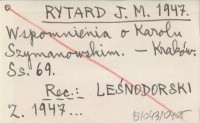 RYTARD J. M. 1947.
Wspomnienia o Karolu
Szymanowskim. — Kraków.
Ss. 69.
Rec.: LEŚNODORSKI
Z. 1947...